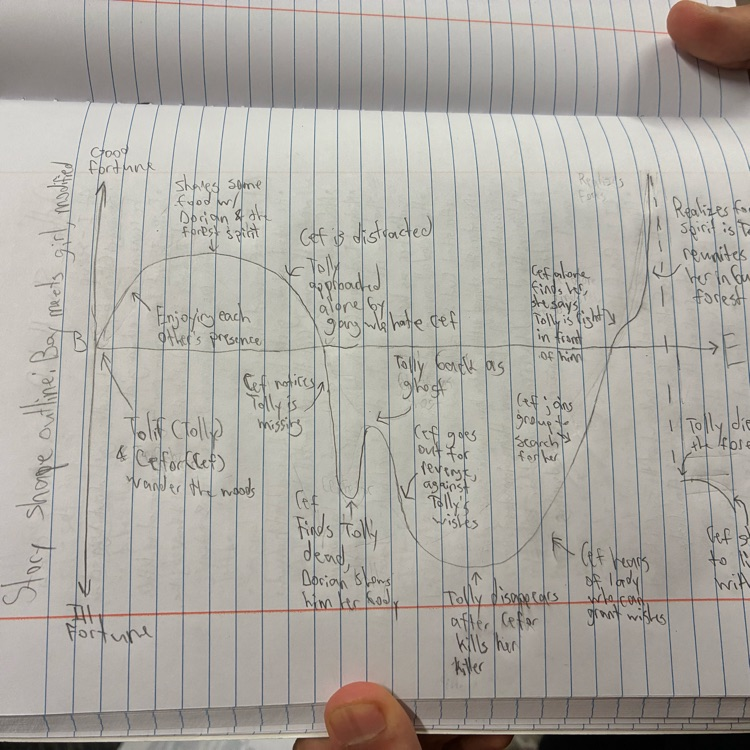 Story shape outline: Boy meets girl, modified
Good
fortune
B
Ill
Fortune
E
Tolif (Tolly)
& Cefor (Cef)
wander the woods
Enjoying each
other's presence
Shares some
food w/
Dorian & the
forest spirit
Cef is distracted
Tolly
approached
alone by
gang who hate Cef
Cef notices
Tolly is
missing
Cef
Finds Tolly
dead,
Dorian shows
him her body
Tolly back as
ghost
Cef goes
out for
revenge,
against
Tolly's
wishes
Tolly disappears
after Cefor
kills her
killer
Cef hears
of lady
who can
grant wishes
Cef joins
group to
search
for her
Cef alone
finds her,
she says
Tolly is right
in front
of him
Realizes
Realizes
spirit is
reunites
her in
forest
Tolly
the
Cef
to